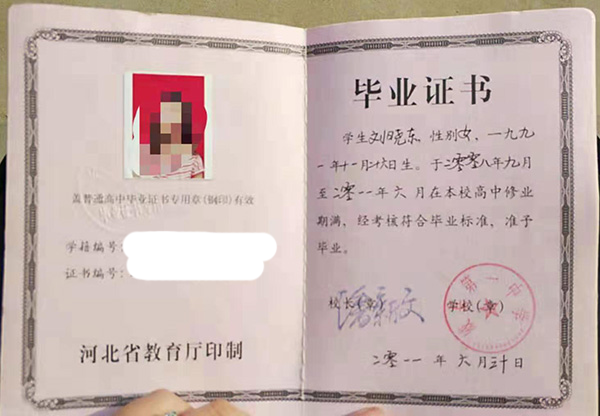 盖普通高中毕业证书专用章(钢印)有效
学籍编号:
证书编号:
河北省教育厅印制
毕业证书
学生刘晓东,性别女,一九九
一年十一月二六日生。于二零零八年九月
至二零一一年六月在本校高中修业
期满,经考核符合毕业标准,准予
毕业。
校长(章)
学校(章)
第一中学
二零一一年六月三十日